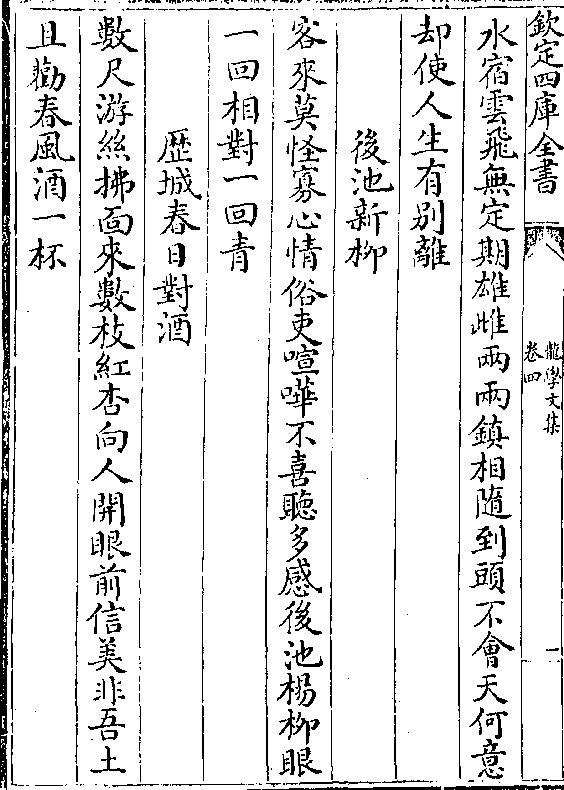 欽定四庫全書
龍學文集
卷四
一
水宿雲飛無定期雄雌兩兩鎮相隨到頭不會天何意
却使人生有别離
後池新柳
客來莫怪寡心情俗吏喧嘩不喜聽多感後池楊柳眼
一回相對一回青
歴城春日對酒
數尺游絲拂面來數枝紅杏向人開眼前信美非吾土
且勸春風酒一杯